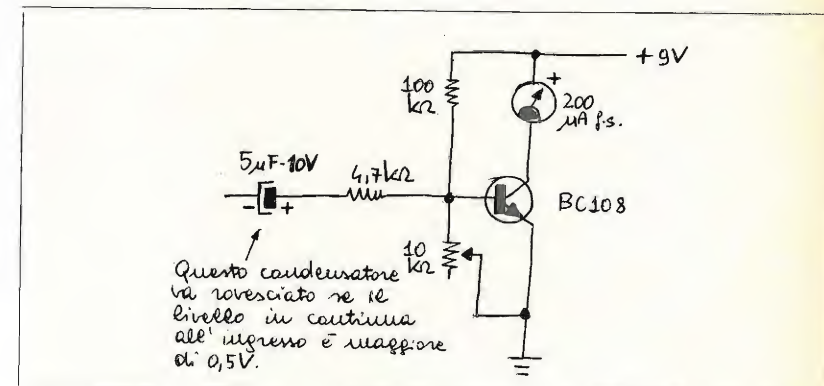 +9V
100
kΩ
+
200
μA f.s.
5μF-10V
4,7kΩ
- +
BC108
10
kΩ
Questo condensatore
va rovesciato se il
livello in continua
all' ingresso è maggiore
di 0,5V.